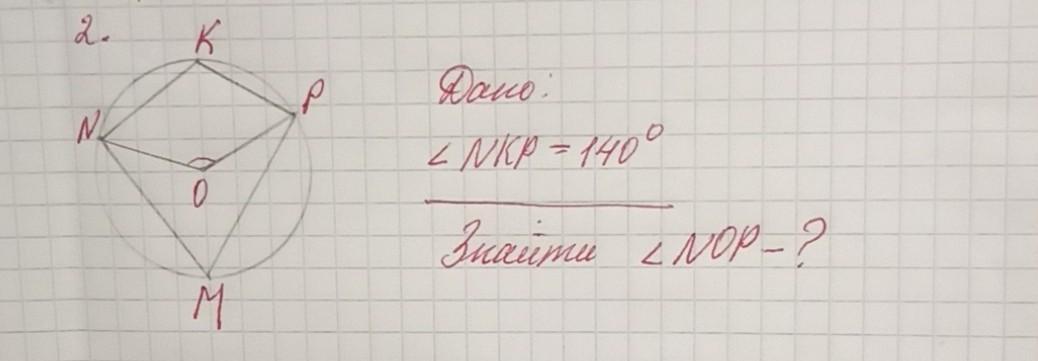 2.
K
P
N
O
M
Дано:
∠NKP = 140°
Знайти ∠NOP - ?